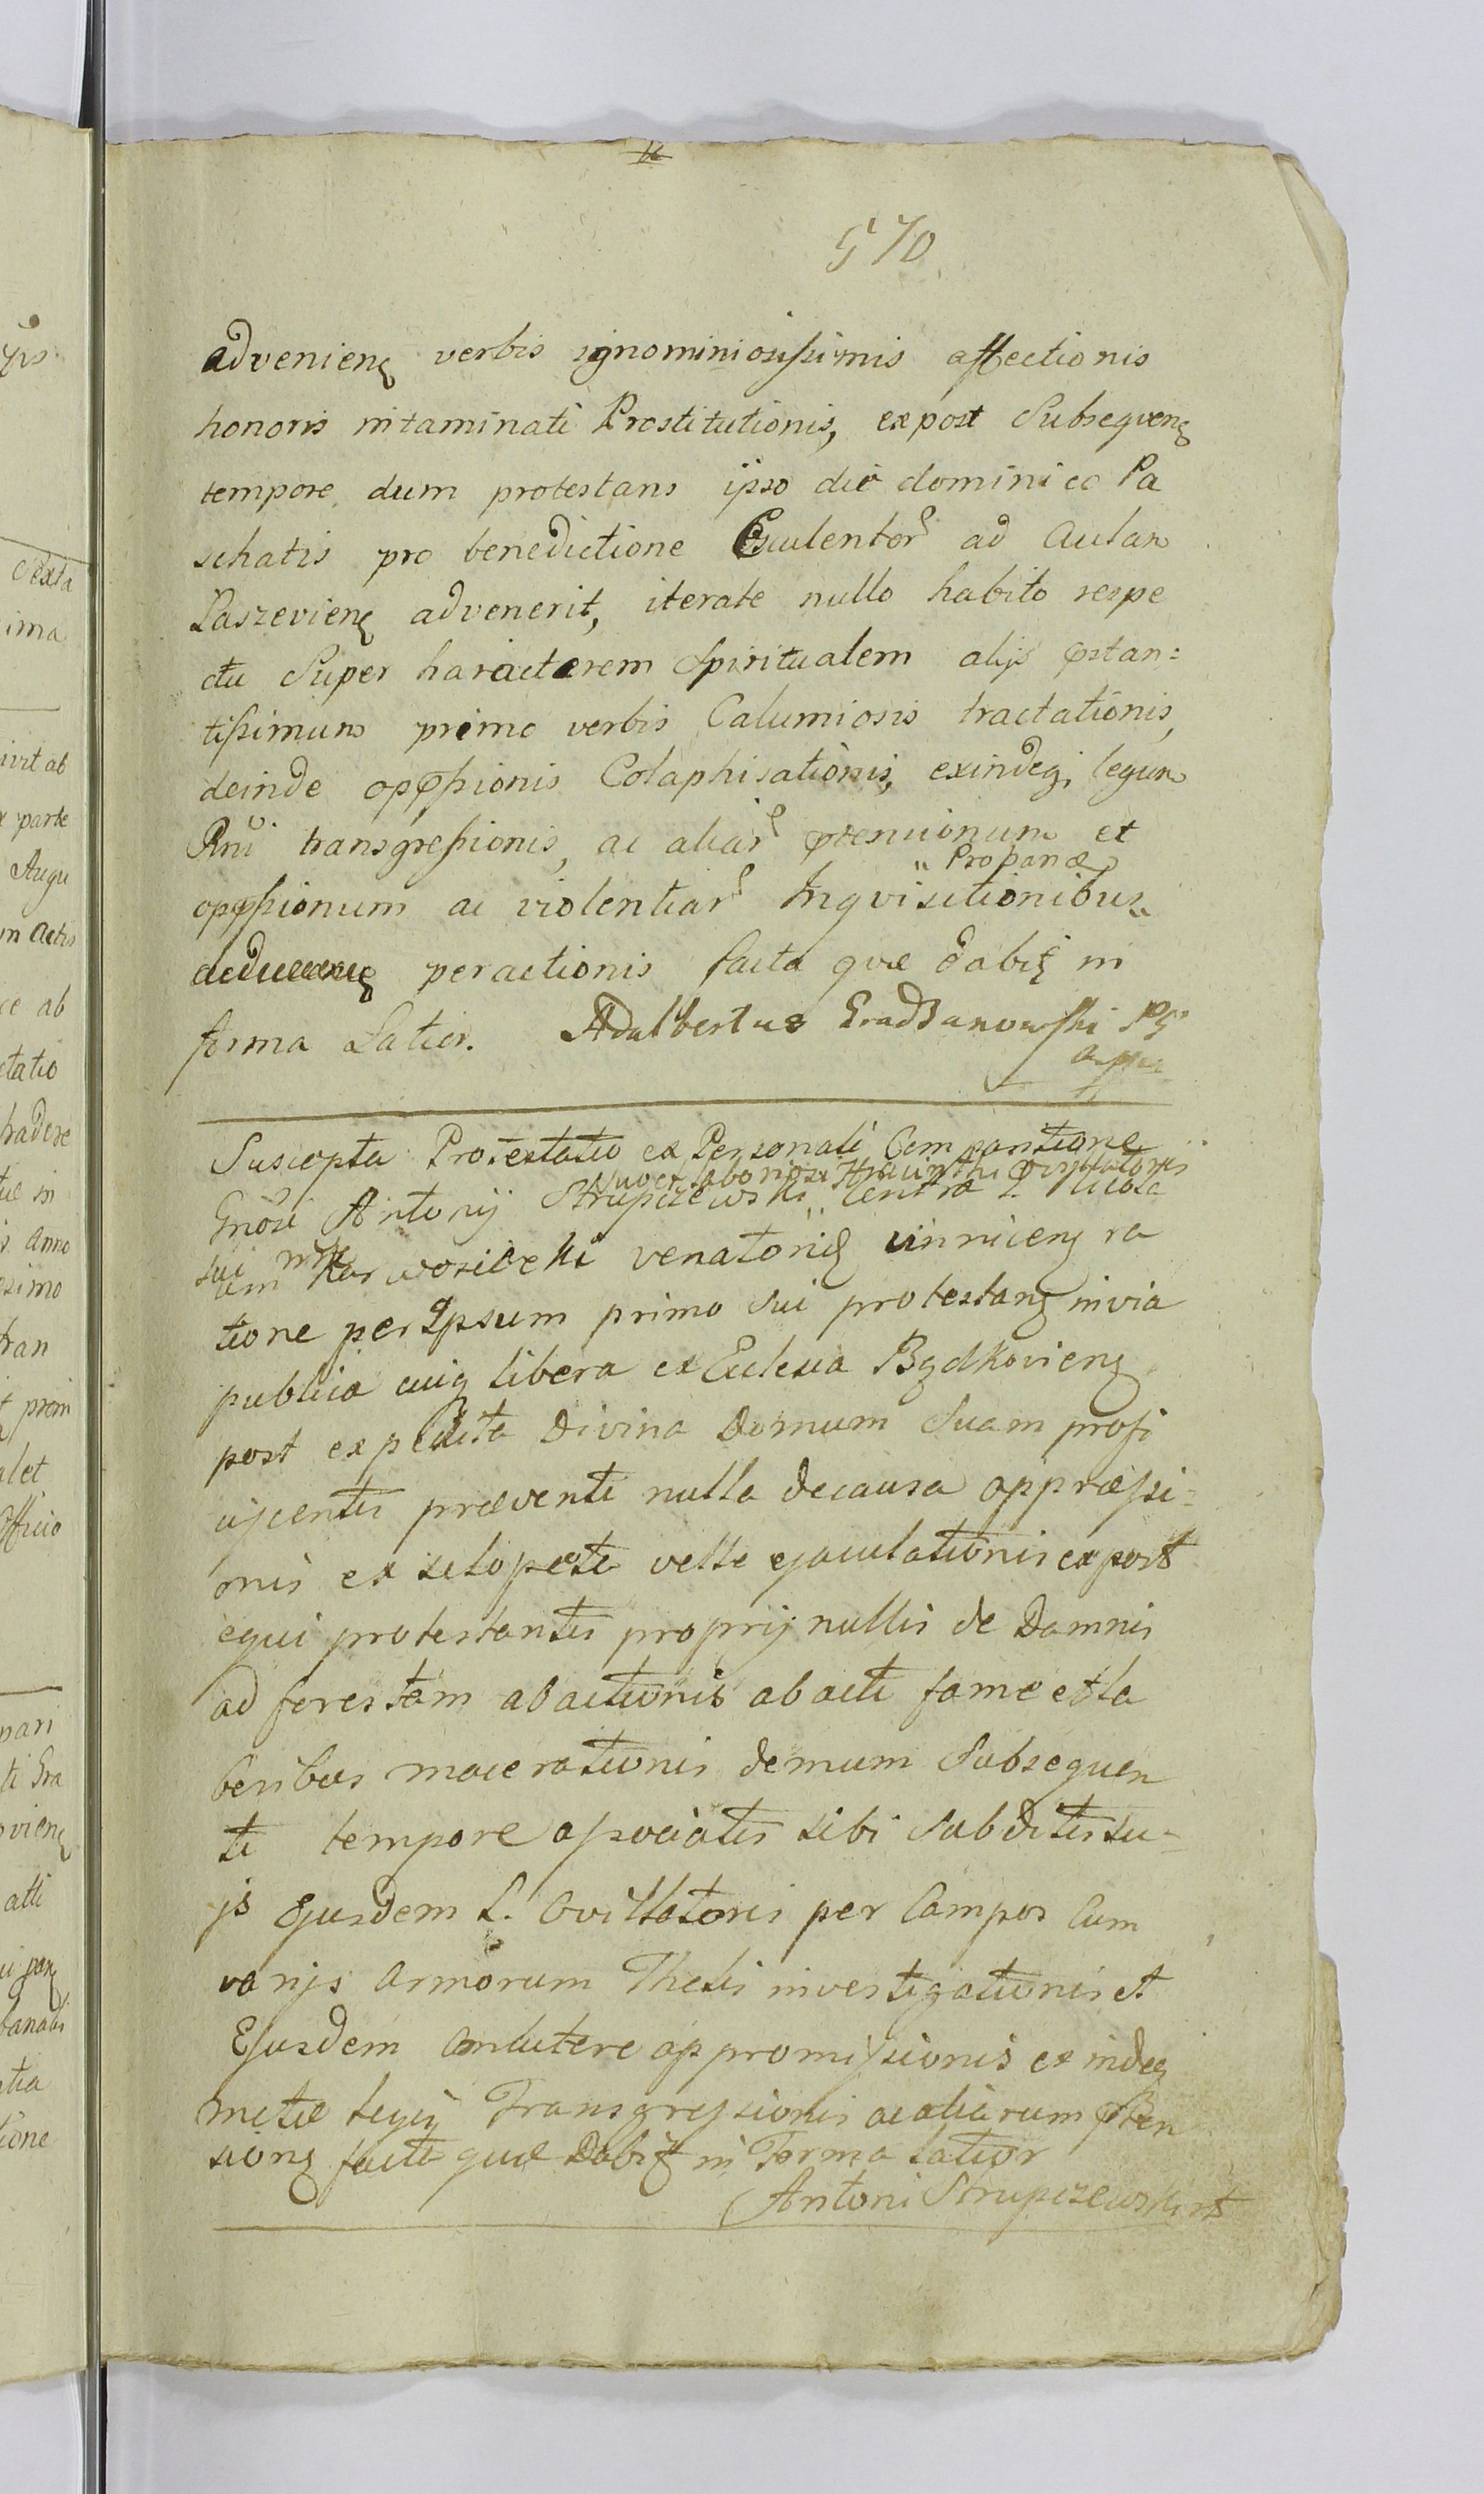 570
advenien verbis ignominiosissimis affectionis
honoris intaminati Prostitutionis, expost Subseqven
tempore dum protestans ipso die dominico Pa
schatis pro benedictione Esculentor ad Aulam
Paszevien advenerit, iterate nullo habito respe
ctu Super haracterem Spiritualem alijs pstan=
tissimum primo verbis Calumiosis tractationis,
deinde oppssionis Colaphisationis, exindeq legum
Rni transgressionis, ac aliar ptensionum et
Propanæ
oppssionum ac violentiar Inqvisitionibus
peractionis facta qvæ dabit in
forma Latior. Adalbertus Gradzanowski
Suscepta Protestatio ex Personali Comparitione
Gnosi Antonij Strupczewski Contra L. Nicola
um Karwosiecki venatoris
sui nroe
tione per Ipsum primo Sui protestan in via
publica cuiq libera ex Eclesia Bądkovien
post expedita Divina Domum Suam profi
ciscentis præventi nulla decausa oppræssi=
onis ex sclopeto velle ejaculationis expost
equi protestantis proprij nullis de Damnis
ad forestam abactionis abacti fame et la
boribus macerationis demum Subsequen
ti tempore associatis sibi Subditis su=
js Ejusdem L. Ovillatoris per Campos Cum
varijs Armorum Thelis investigationis et
Ejusdem Concutere appromissionis exindeq
metæ legis Transgressionis ac aliarum pten
sion facta quæ Dabit in Forma latior
Antoni Strupczewski